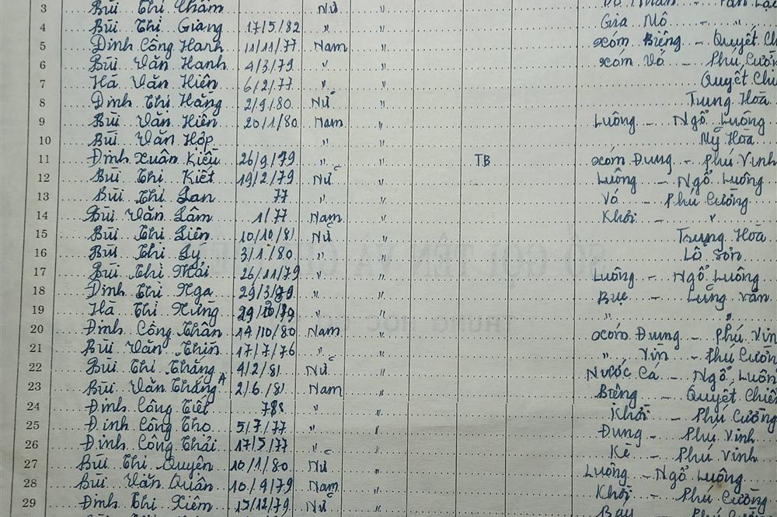 3 Bùi Thị Chăm Nữ
4 Bùi Thị Giang 17/5/82 " " Gia Mô "
5 Đinh Công Hanh 11/11/77 Nam " xóm Biêng - Quyết Ch
6 Bùi Văn Hanh 4/3/79 " " xóm Vó - Phú Cường
7 Hà Văn Hiên 6/2/77 " " Quyết Chi
8 Đinh Thị Hằng 2/9/80 Nữ " Trung Hoà
9 Bùi Văn Hiên 20/1/80 Nam " Luông - Ngổ Luông
10 Bùi Văn Hóp " Mỹ Hòa
11 Đinh Xuân Kiều 26/9/79 " " TB xóm Đung - Phú Vinh
12 Bùi Thị Kiết 19/2/79 Nữ " Luông - Ngổ Luông
13 Bùi Thị Lan 77 " " Vó - Phú Cường
14 Bùi Văn Lâm 1/77 Nam " Khôi - "
15 Bùi Thị Liên 10/10/81 Nữ " Trung Hoà
16 Bùi Thị Lý 3/1/80 " " Lỗ Sơn
17 Bùi Thị Mải 26/11/79 " " Luông - Ngổ Luông
18 Đinh Thị Nga 29/3/79 " " Bục - Lũng Vân
19 Hà Thị Nừng " " " "
20 Đinh Công Nhân 14/10/80 Nam " xóm Đung - Phú Vin
21 Bùi Văn Thìn 17/7/76 " " " Vin - Phú Cường
22 Bùi Thị Thăng 4/2/81 Nữ " Nước Cá - Ngổ Luôn
23 Bùi Văn Thăng A 2/6/81 Nam " Biêng - Quyết Chiế
24 Đinh Công Tiết " " Khôi - Phú Cường
25 Đinh Công Tho 5/7/77 " " Đung - Phú Vinh
26 Đinh Công Thải 17/5/77 " " Kè - Phú Vinh
27 Bùi Thị Quyên 10/1/80 Nữ " Luông - Ngổ Luông
28 Bùi Văn Quân 10/4/79 Nam " Khôi - Phú Cường
29 Đinh Thị Xiêm 15/12/79 Nữ " Bay Phú Cườn